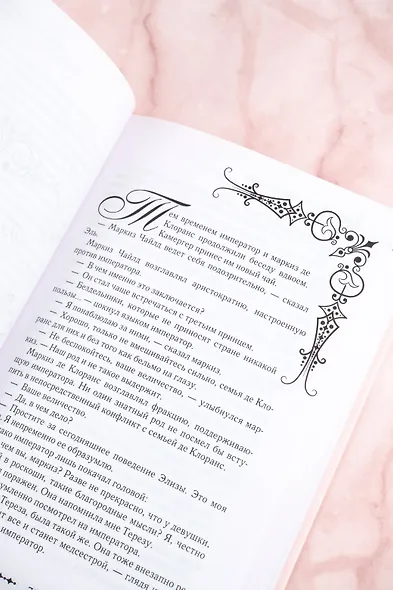 Тем временем император и маркиз де
Клоранс продолжили беседу вдвоем.
Камергер принес им новый чай.
— Маркиз Чайлд ведет себя подозрительно, — сказал
Эль.
Маркиз Чайлд возглавлял аристократию, настроенную
против императора.
— В чем именно это заключается?
— Он стал чаще встречаться с третьим принцем.
— Бездельники, которые не приносят стране никакой
пользы... — цокнул языком император.
— Я понаблюдаю за ними, — сказал маркиз.
— Хорошо, только не вмешивайтесь сильно, семья де Кло-
ранс для них и без того как бельмо на глазу.
— Не беспокойтесь, ваше величество, — улыбнулся мар-
киз. — Наш род и не такое выдержит.
Маркиз де Клоранс возглавлял фракцию, поддерживаю-
щую императора. Ни один знатный род не посмел бы всту-
пить в непосредственный конфликт с семьей де Клоранс.
— Ваше величество.
— Да, в чем дело?
— Простите за сегодняшнее поведение Элизы. Это моя
Я непременно ее образумлю.
ако император лишь покачал головой:
чем вы, маркиз? Разве не прекрасно, что у девушки,
й в роскоши, такие благородные мысли? Я, честно
поражен. Она напомнила мне Терезу.
умленно посмотрел на императора.
Тереза, была такой же. Она тоже внезапно ре
т все и станет медсестрой, — глядя
император.